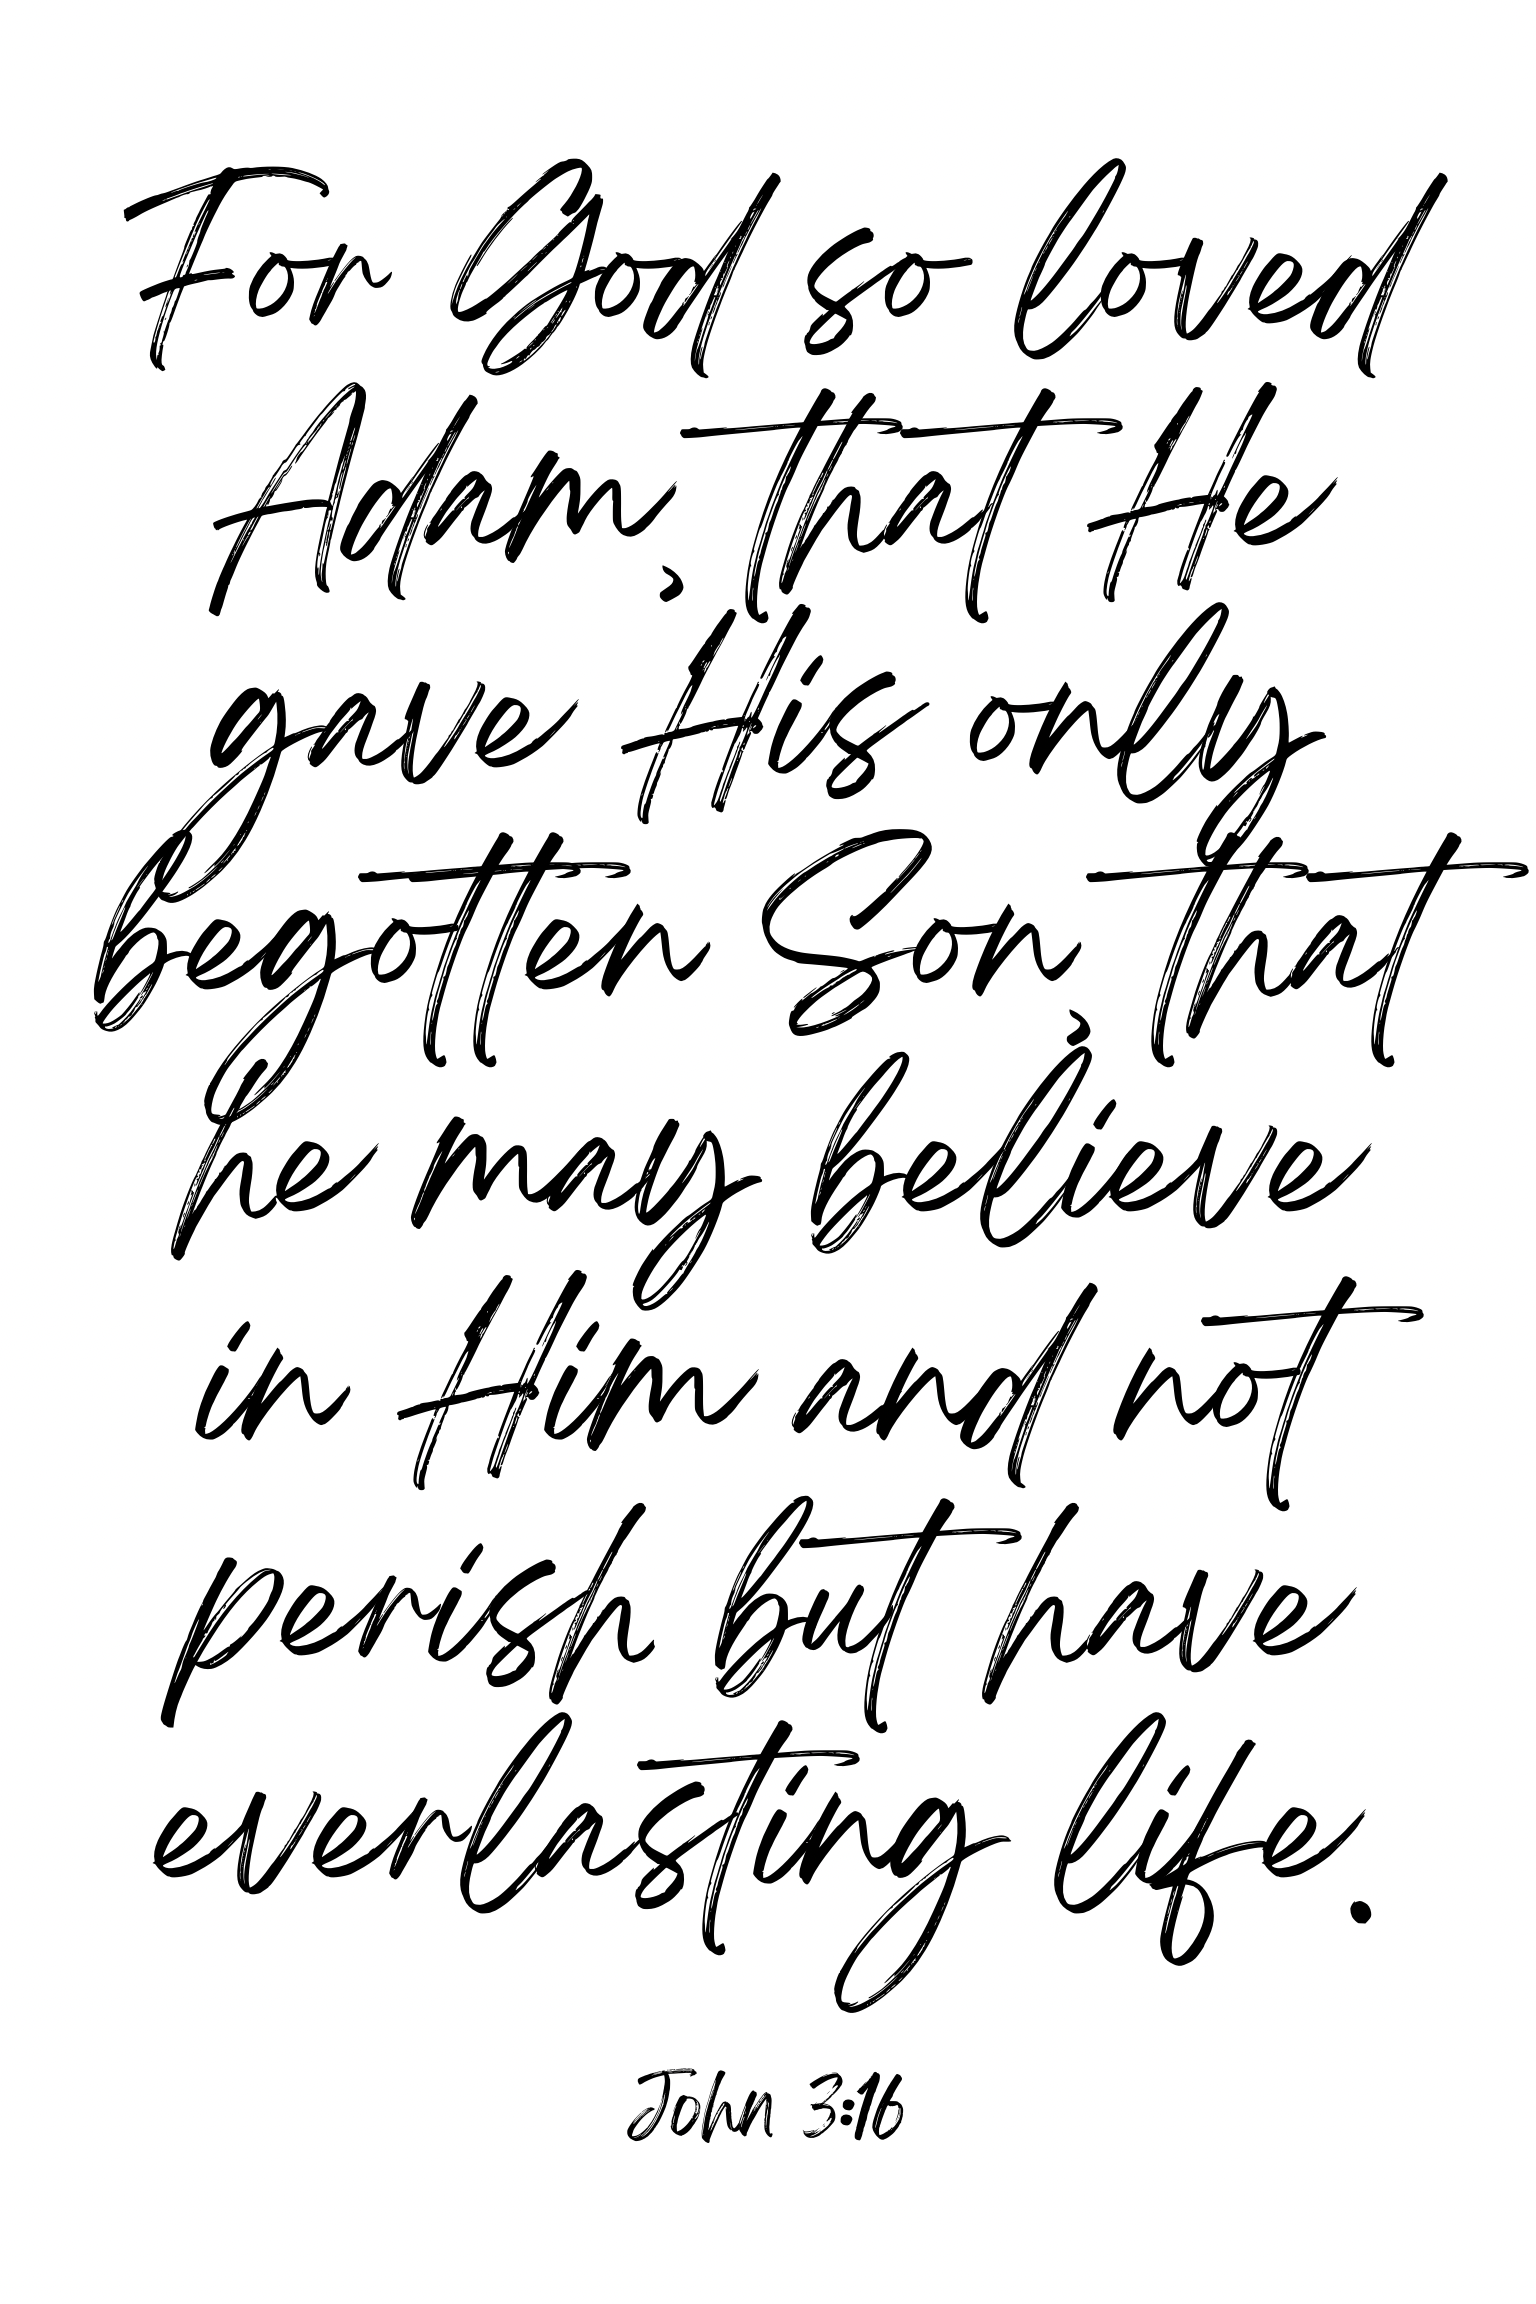 For God so loved
Adam, that He
gave His only
begotten Son, that
he may believe
in Him and not
perish but have
everlasting life.
John 3:16